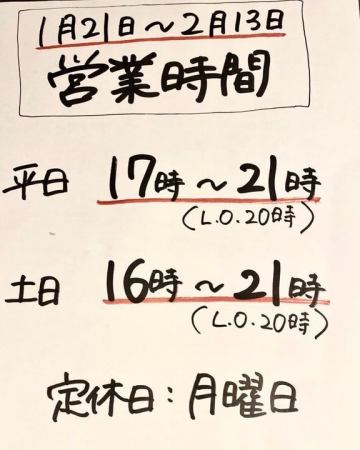 1月21日～2月13日
営業時間
平日 17時～21時
(L.O.20時)
土日 16時～21時
(L.O.20時)
定休日:月曜日